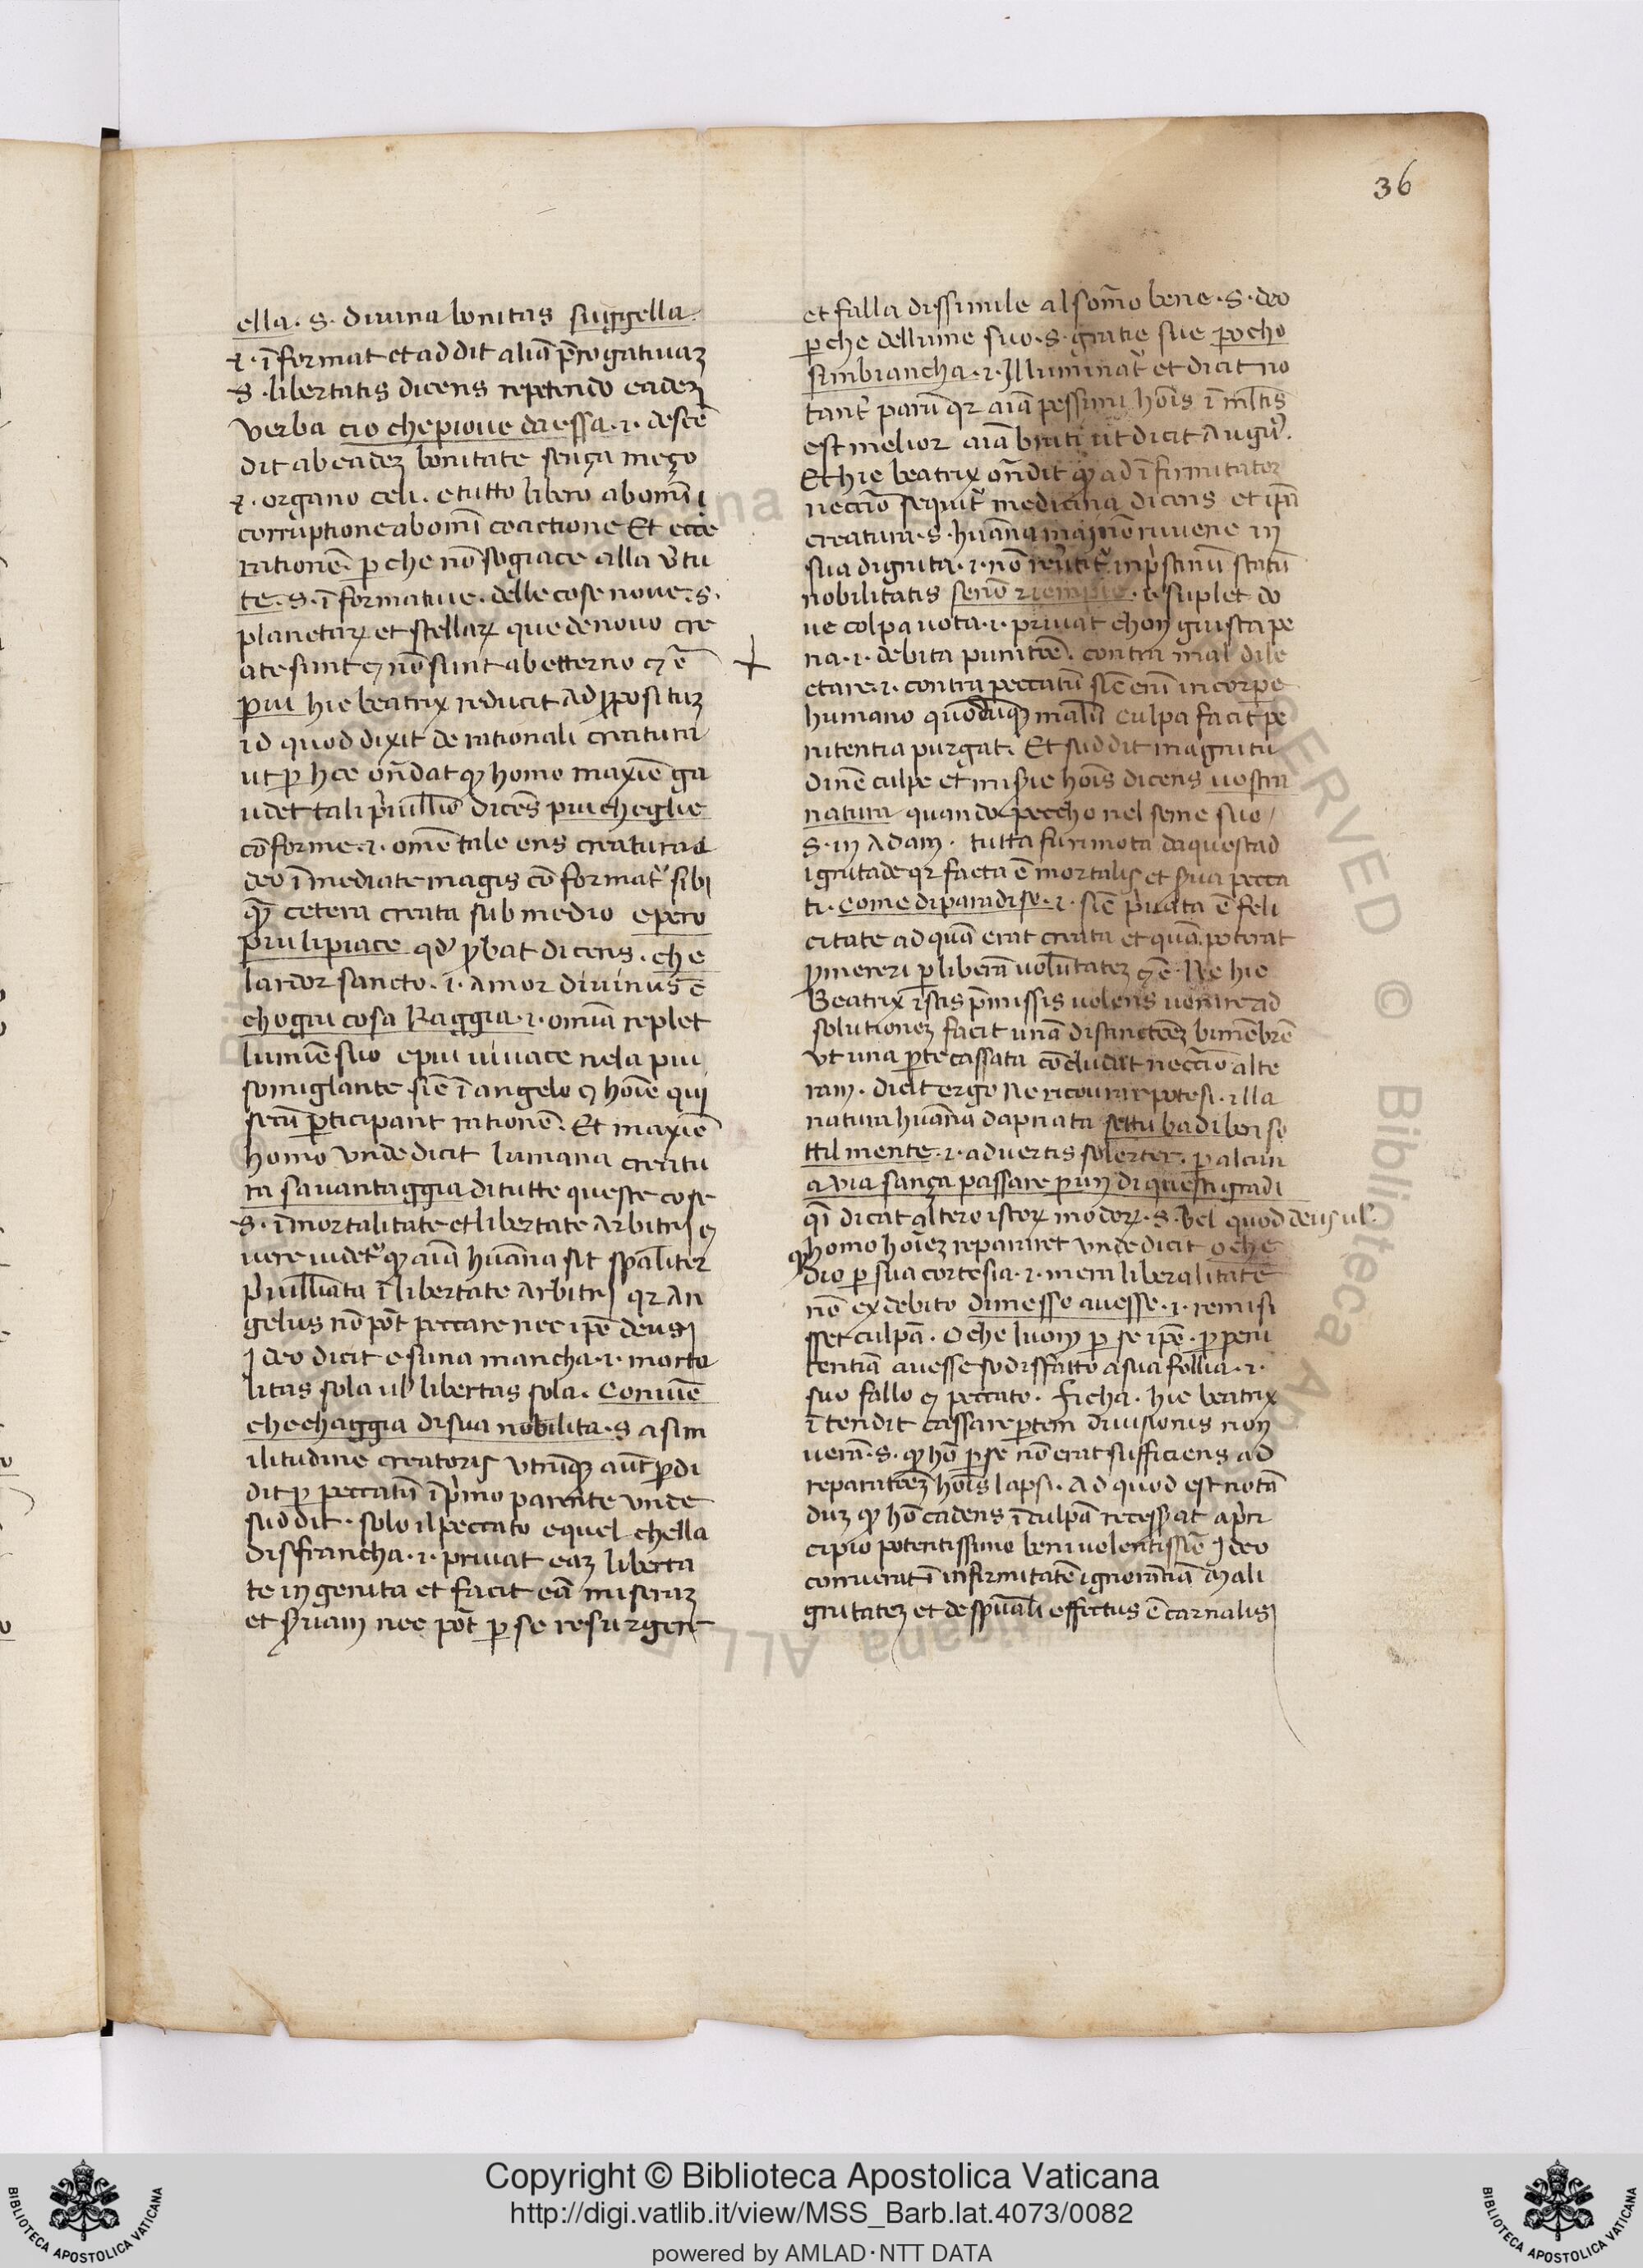 36
ella · s · diuina bonitas suggella ·
·i· īformat et addit aliā p̄rogatiuaꝫ
s · libertatis dicens repetendo eadeꝫ
verba cio che pioue da essa ·i· descē
dit ab eadeꝫ bonitate sença meço
·i· organo celi · e tutto libero ab omī
corruptione ab omī coactione Et ecce
rationē · ꝑ che nō sogiace alla v̓tu
te · s · īformatiue · delle cose noue · s ·
planetaꝝ et stellaꝝ que de novo cre
ate sunt ⁊ nō sunt ab etterno ⁊ ē
piu hic beatrix reducit ad ꝓposituꝫ
id quod dixit de rationali creatura
ut ꝑ hec oñdat ꝙ homo maxīe ga
udet tali p̓uillio dicēs piu che glie
cōforme ·i· omē tale ens creatura a
deo īmediate magis cōformat̓ sibi
ꝙ̄ cetera creata sub medio e pero
piu li piace qd̓ ꝓbat dicens · che
lardor sancto · i · amor diuinus ē
chogni cosa Raggia ·i· omīa replet
lumīe suo e piu uiuace nela piu
somiglante · siē ī angelo ⁊ hoīe qui
secū ꝑticipant rationē · Et maxīe
homo vnde dicit lumana creatu
ra sauantaggia di tutte queste cose
s · īmortalitate et libertate arbitrij ⁊
uere uidet̓ ꝙ aīa huāna sit spāliter
p̓uillīata ī libertate arbitrij qꝛ an
gelus nō pōt peccare nec ipē deus
Ideo dicit e suna mancha ·i· morta
litas sola ul̓ libertas sola · Conuiē
che chaggia di sua nobilita · s a sim
ilitudine creatoris vtrūqꝫ aūt ꝑdi
dit ꝑ peccatū ī p̓mo parente vnde
suddit · solo il peccato e quel chella
disfrancha ·i· priuat eaꝫ liberta
te ingenita et facit eā miseraꝫ
et s̓uam nec pōt ꝑ se resurgere
et falla dissimile al som̄o bene · s · deo
ꝑ che del lume suo · s · gratie sue pocho
sinbiancha ·i· Illuminat̓ et dicit no
tant̓ parū qꝛ aīa pessimi hoīs ī mltīs
est melior aīa bruti ut dicit Augu̓ ·
Et hic beatrix oñdit ꝙ ad īfirmitateꝫ
neccīo sequit̓ medicina dicens et ipā
creatura · s · huāna mai nō riuene in
sua dignita ·i· nō reu̓tit̓ in p̓stinū statū
nobilitatis senō riempie · i · suplet do
ue colpa uota ·i· priuat chon giusta pe
na ·i· debita punitōe · contra mal dile
ctare ·i· contra peccatū siē enī in corpe
humano quodcūqꝫ malū culpa facit pe
nitentia purgat · Et suddit magnitu
dinē culpe et mis̓ie hoīs dicens uostra
natura quando peccho nel seme suo
s · in Adam · tutta fu rimota da questa d
ignitade qꝛ facta ē mortalis et s̓ua pecca
ti · Come di paradiso ·i· siē p̓uata ē feli
citate ad quā erat creata et quā poterat
ꝓmereri ꝑ liberā voluntateꝫ ⁊ ē · Ne hic
Beatrix istis p̄missis uolens uenire ad
solutioneꝫ facit unā distinctōeꝫ bimēbrē
vt una ꝑte cassata cōcludat neccīo alte
ram · dicit ergo Ne ricourir potesi · illa
natura huāna dapnata se tu badi ben so
ttil mente ·i· aduertis solerter · ꝑ alcun
a via sança passare ꝑ un di questi gradi
qī dicat altero istoꝝ modoꝝ · s · vel quod deus ul̓
ꝙ homo hoīeꝫ repararet vnde dicit o che
dio ꝑ sua cortesia ·i· mera liberalitate
nō ex debito dimesso auesse ·i· remisi
sset culpā · O che luom ꝑ se ipē · ꝑ peni
tentiā auesse sodisfatto a sua follia ·i·
suo fallo ⁊ peccato · ficha · hic beatrix
ītendit cassare ꝑtem diuisionis non
uerā · s · ꝙ hō ꝑ se nō erat sufficiens ad
reparatōeꝫ hoīs lapsi · Ad quod est notā
duꝫ ꝙ hō cadens ī culpā recesserat a p̓n
cipio potentissimo beniuolentissīo Ideo
conuerat̄ ī infirmitatē ignorantiā mali
gnitateꝫ et de spūali effectus ē carnalis
Copyright © Biblioteca Apostolica Vaticana
http://digi.vatlib.it/view/MSS_Barb.lat.4073/0082
powered by AMLAD·NTT DATA